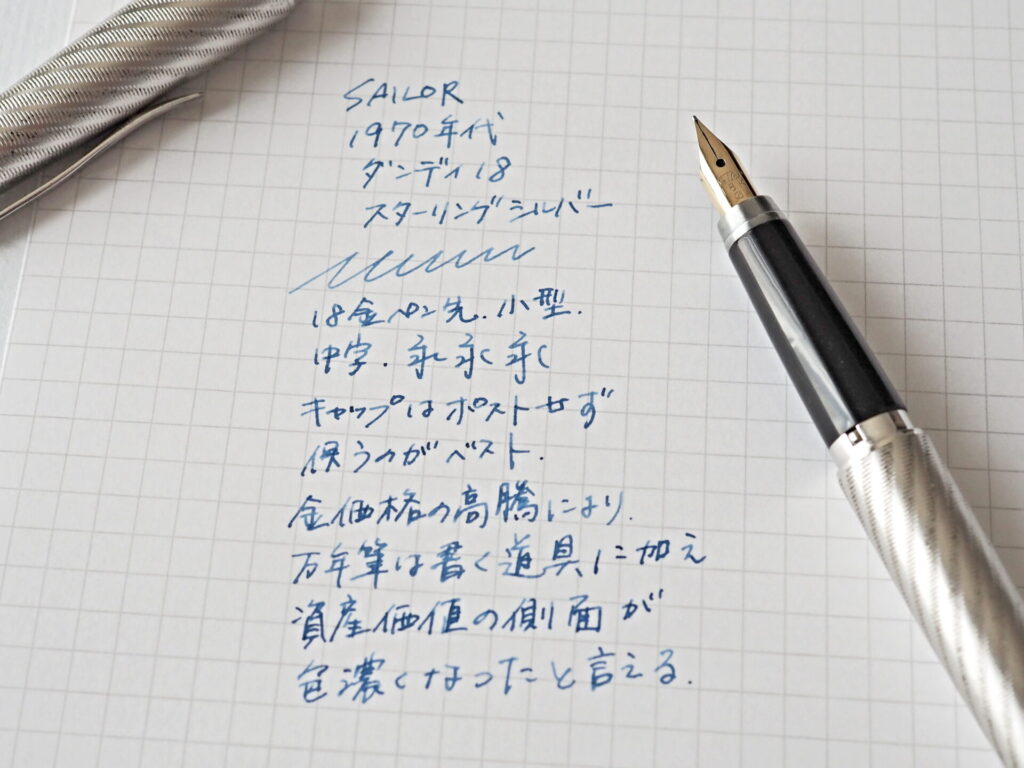 SAILOR
1970年代
ダンディ18
スターリングシルバー
18金ペン先.小型.
中字.永永永
キャップはポストせず
使うのがベスト.
金価格の高騰により.
万年筆は書く道具に加え
資産価値の側面が
色濃くなったと言える.